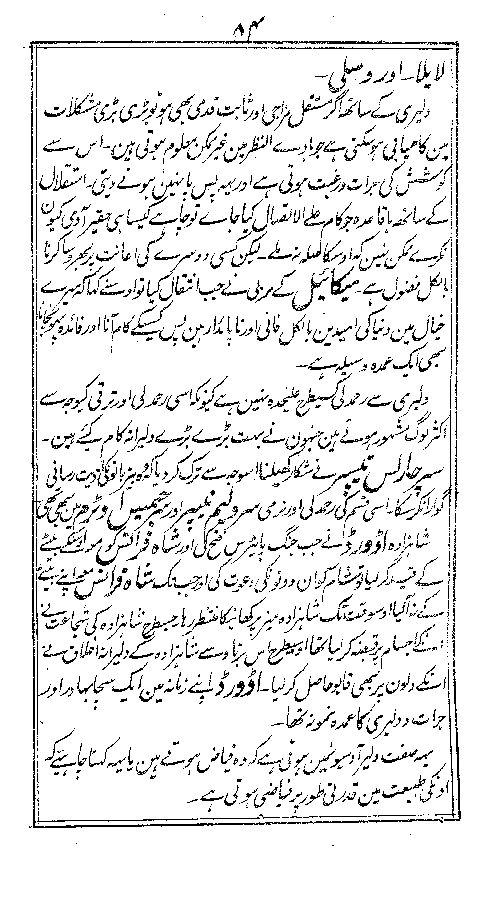 ۸۴
لایلا۔ اور وسلی۔
دلیری کے ساتھ اگر مستقل مزاجی اور ثابت قدمی بھی ہو تو بڑی بڑی مشکلات
مین کامیابی ہو سکتی ہے جو بادے النظر مین غیر ممکن معلوم ہوتی ہین۔ اس سے
کوشش کی جرات و رغبت ہوتی ہے اور یہہ پس پا نہین ہونے دیتی۔ استقلال
کے ساتھ باقاعدہ جو کام علے الاتصال کیا جاے تو چاہے کیسا ہی حقیر آدمی کیون
نکرے ممکن نہین کہ اوسکا صلہ نہ ملے۔ لیکن کسی دوسرے کی اعانت پر بھروسا کرنا
بالکل فضول ہے۔ میکائیل کے مربی نے جب انتقال کیا تو اوسنے کہا کہ میرے
خیال مین دنیا کی امیدین بالکل فانی اور ناپائدار ہین پس کسیکے کام آنا اور فائدہ پہونچانا
سبھی ایک عمدہ وسیلہ ہے۔
دلیری سے رحمدلی کسیطرح علٰحدہ نہین ہے کیونکہ اسی رحمدلی اور ترقی کیوجہ سے
اکثر لوگ مشہور ہوئے ہین جنہون نے بہت بڑے بڑے دلیرانہ کام کیے ہین۔
سر چارلس نیپیر نے شکار کھیلنا اسوجہ سے ترک کر دیا کہ وہ بیزبانونکی اذیت رسانی
گوارا نکر سکا۔ اسی قسم کی رحمدلی اور نرمی سر ولیم نیپیر اور جیمس وٹرم مین بھی تھی
شاہزادہ اڈورڈ نے جب جنگ پایٹرس فتح کی اور شاہ فرانس کو مع اوسکے بیٹے
کے قید کر لیا تو شام کو ان دونونکی دعوت کی اور جبتک شاہ فرانس مع اپنے بیٹے
کے نہ آلیا اوسوقت تک شاہزادہ میز پر کھانیکا منتظر رہا جسطرح شاہزادہ کی شجاعت نے
انکے اجسام پر قبضہ کر لیا تھا اوسیطرح اس برتاو سے شاہزادہ کے دلیرانہ اخلاق نے
انکے دلون پر بھی قابو حاصل کر لیا۔ اڈورڈ اپنے زمانہ مین ایک سچا بہادر اور
جرات و دلیری کا عمدہ نمونہ تھا۔
یہہ صفت دلیر آدمیونمین ہوتی ہے کہ وہ فیاض ہوتے ہین یا یہہ کہنا چاہیے کہ
اونکی طبیعت مین قدرتی طور پر فیاضی ہوتی ہے۔